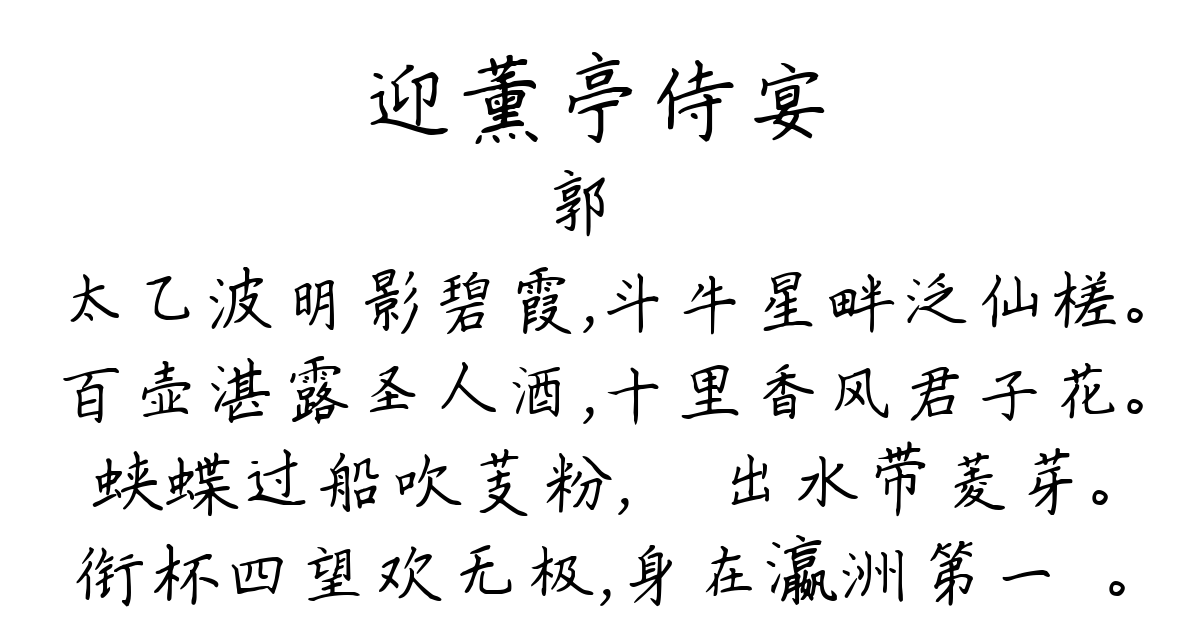 迎薰亭侍宴
郭
太乙波明影碧霞,斗牛星畔泛仙槎。
百壶湛露圣人酒,十里香风君子花。
蛱蝶过船吹芰粉, 出水带菱芽。
衔杯四望欢无极,身在瀛洲第一 。